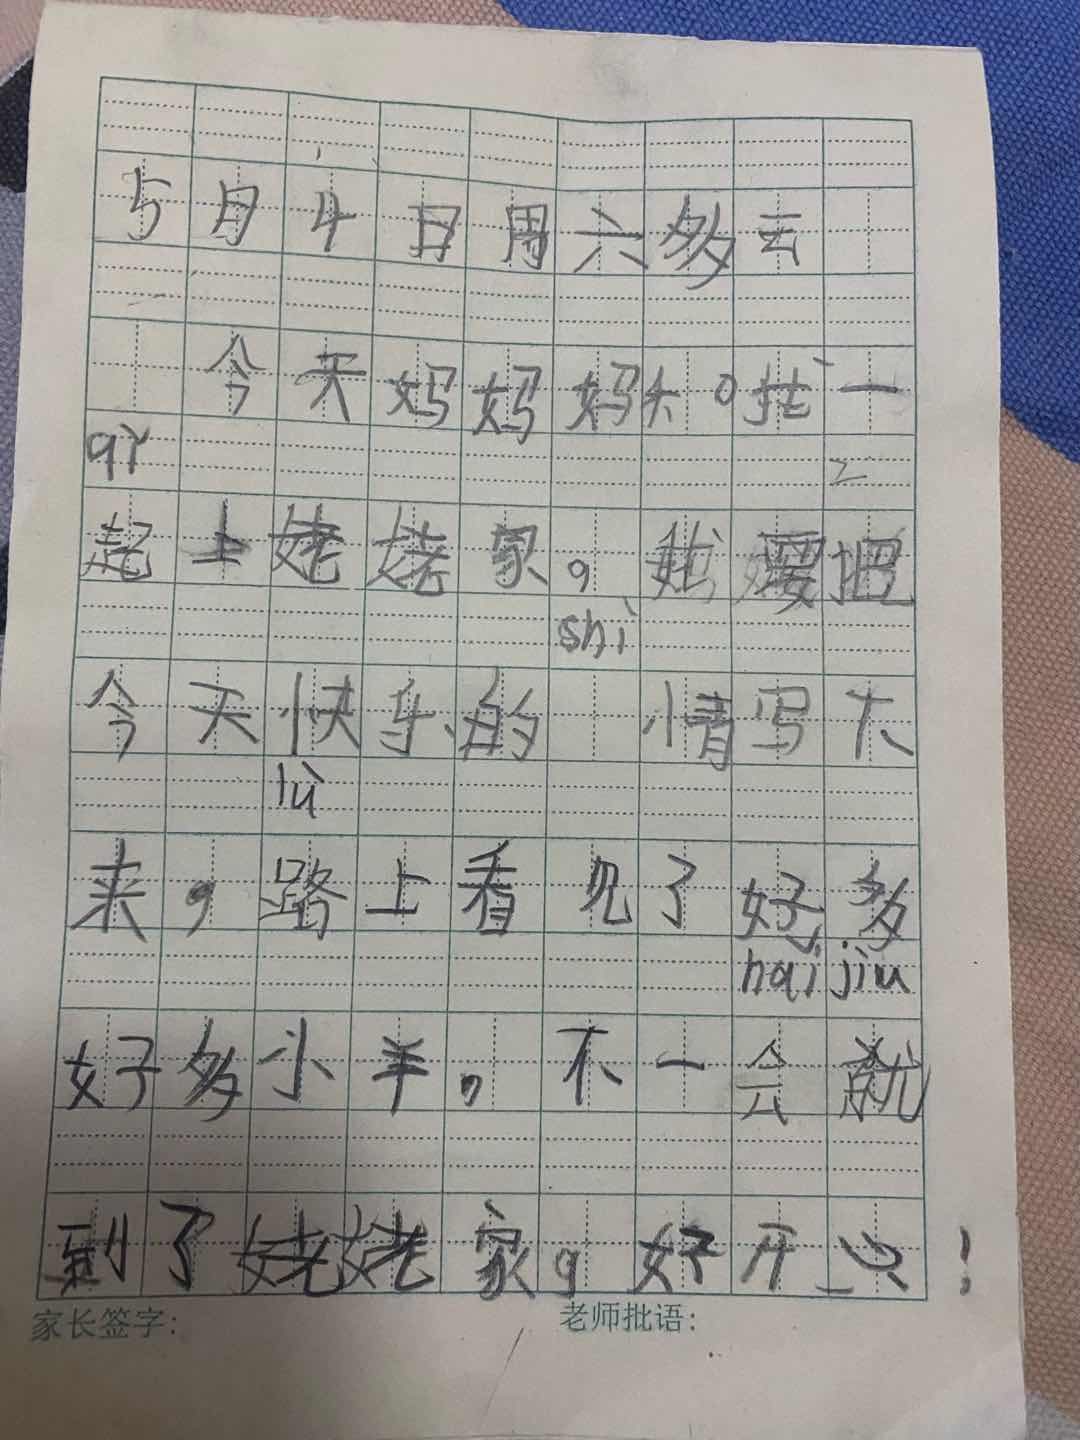 5月4日周六多云
今天妈妈妈和我一
qǐ
起上姥姥家,我要把
shì
今天快乐的 情写下
lù
来,路上看见了好多
hai jiu
好多小羊,不一会就
到了姥姥家,好开心!
家长签字: 老师批语: